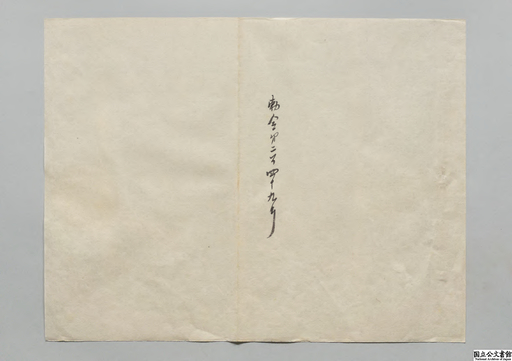 勅令第二百四十九号
国立公文書館
National Archives of Japan